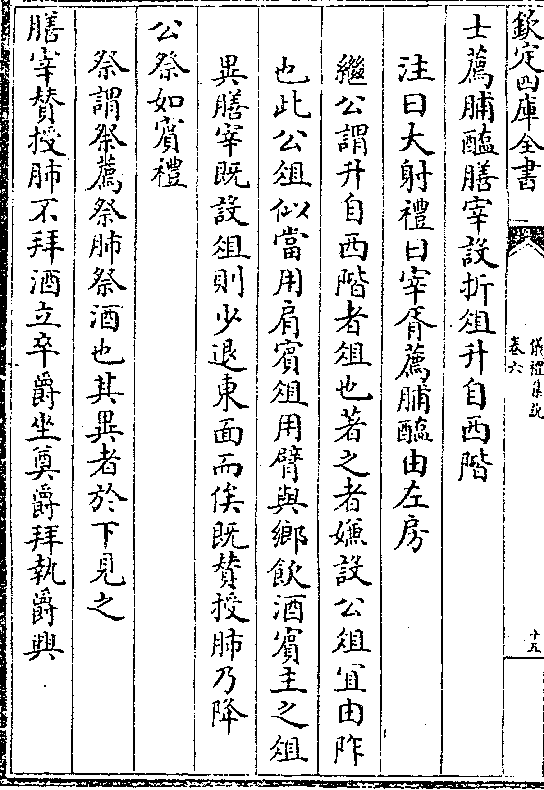 欽定四庫全書
儀禮集說
卷六
十五
士薦脯醢膳宰設折俎升自西階
注曰大射禮曰宰胥薦脯醢由左房
繼公謂升自西階者俎也著之者嫌設公俎宜由阼
也此公俎似當用肩賓俎用臂與鄉飲酒賓主之俎
異膳宰既設俎則少退東面而俟既贊授肺乃降
公祭如賓禮
祭謂祭薦祭肺祭酒也其異者於下見之
膳宰贊授肺不拜酒立卒爵坐奠爵拜執爵興